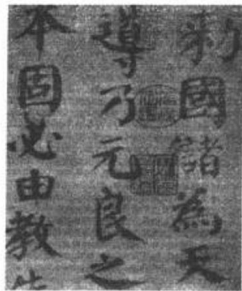 勑國儲為天
導乃元良之
本固必由教